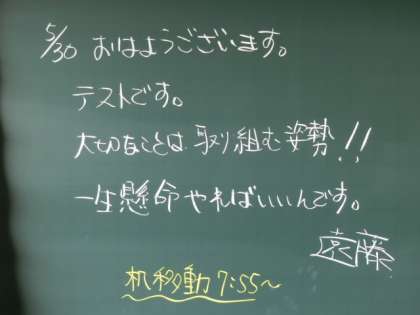 5/30 おはようございます。
テストです。
大切なことは、取り組む姿勢!!
一生懸命やればいいんです。
遠藤
机移動 7:55～